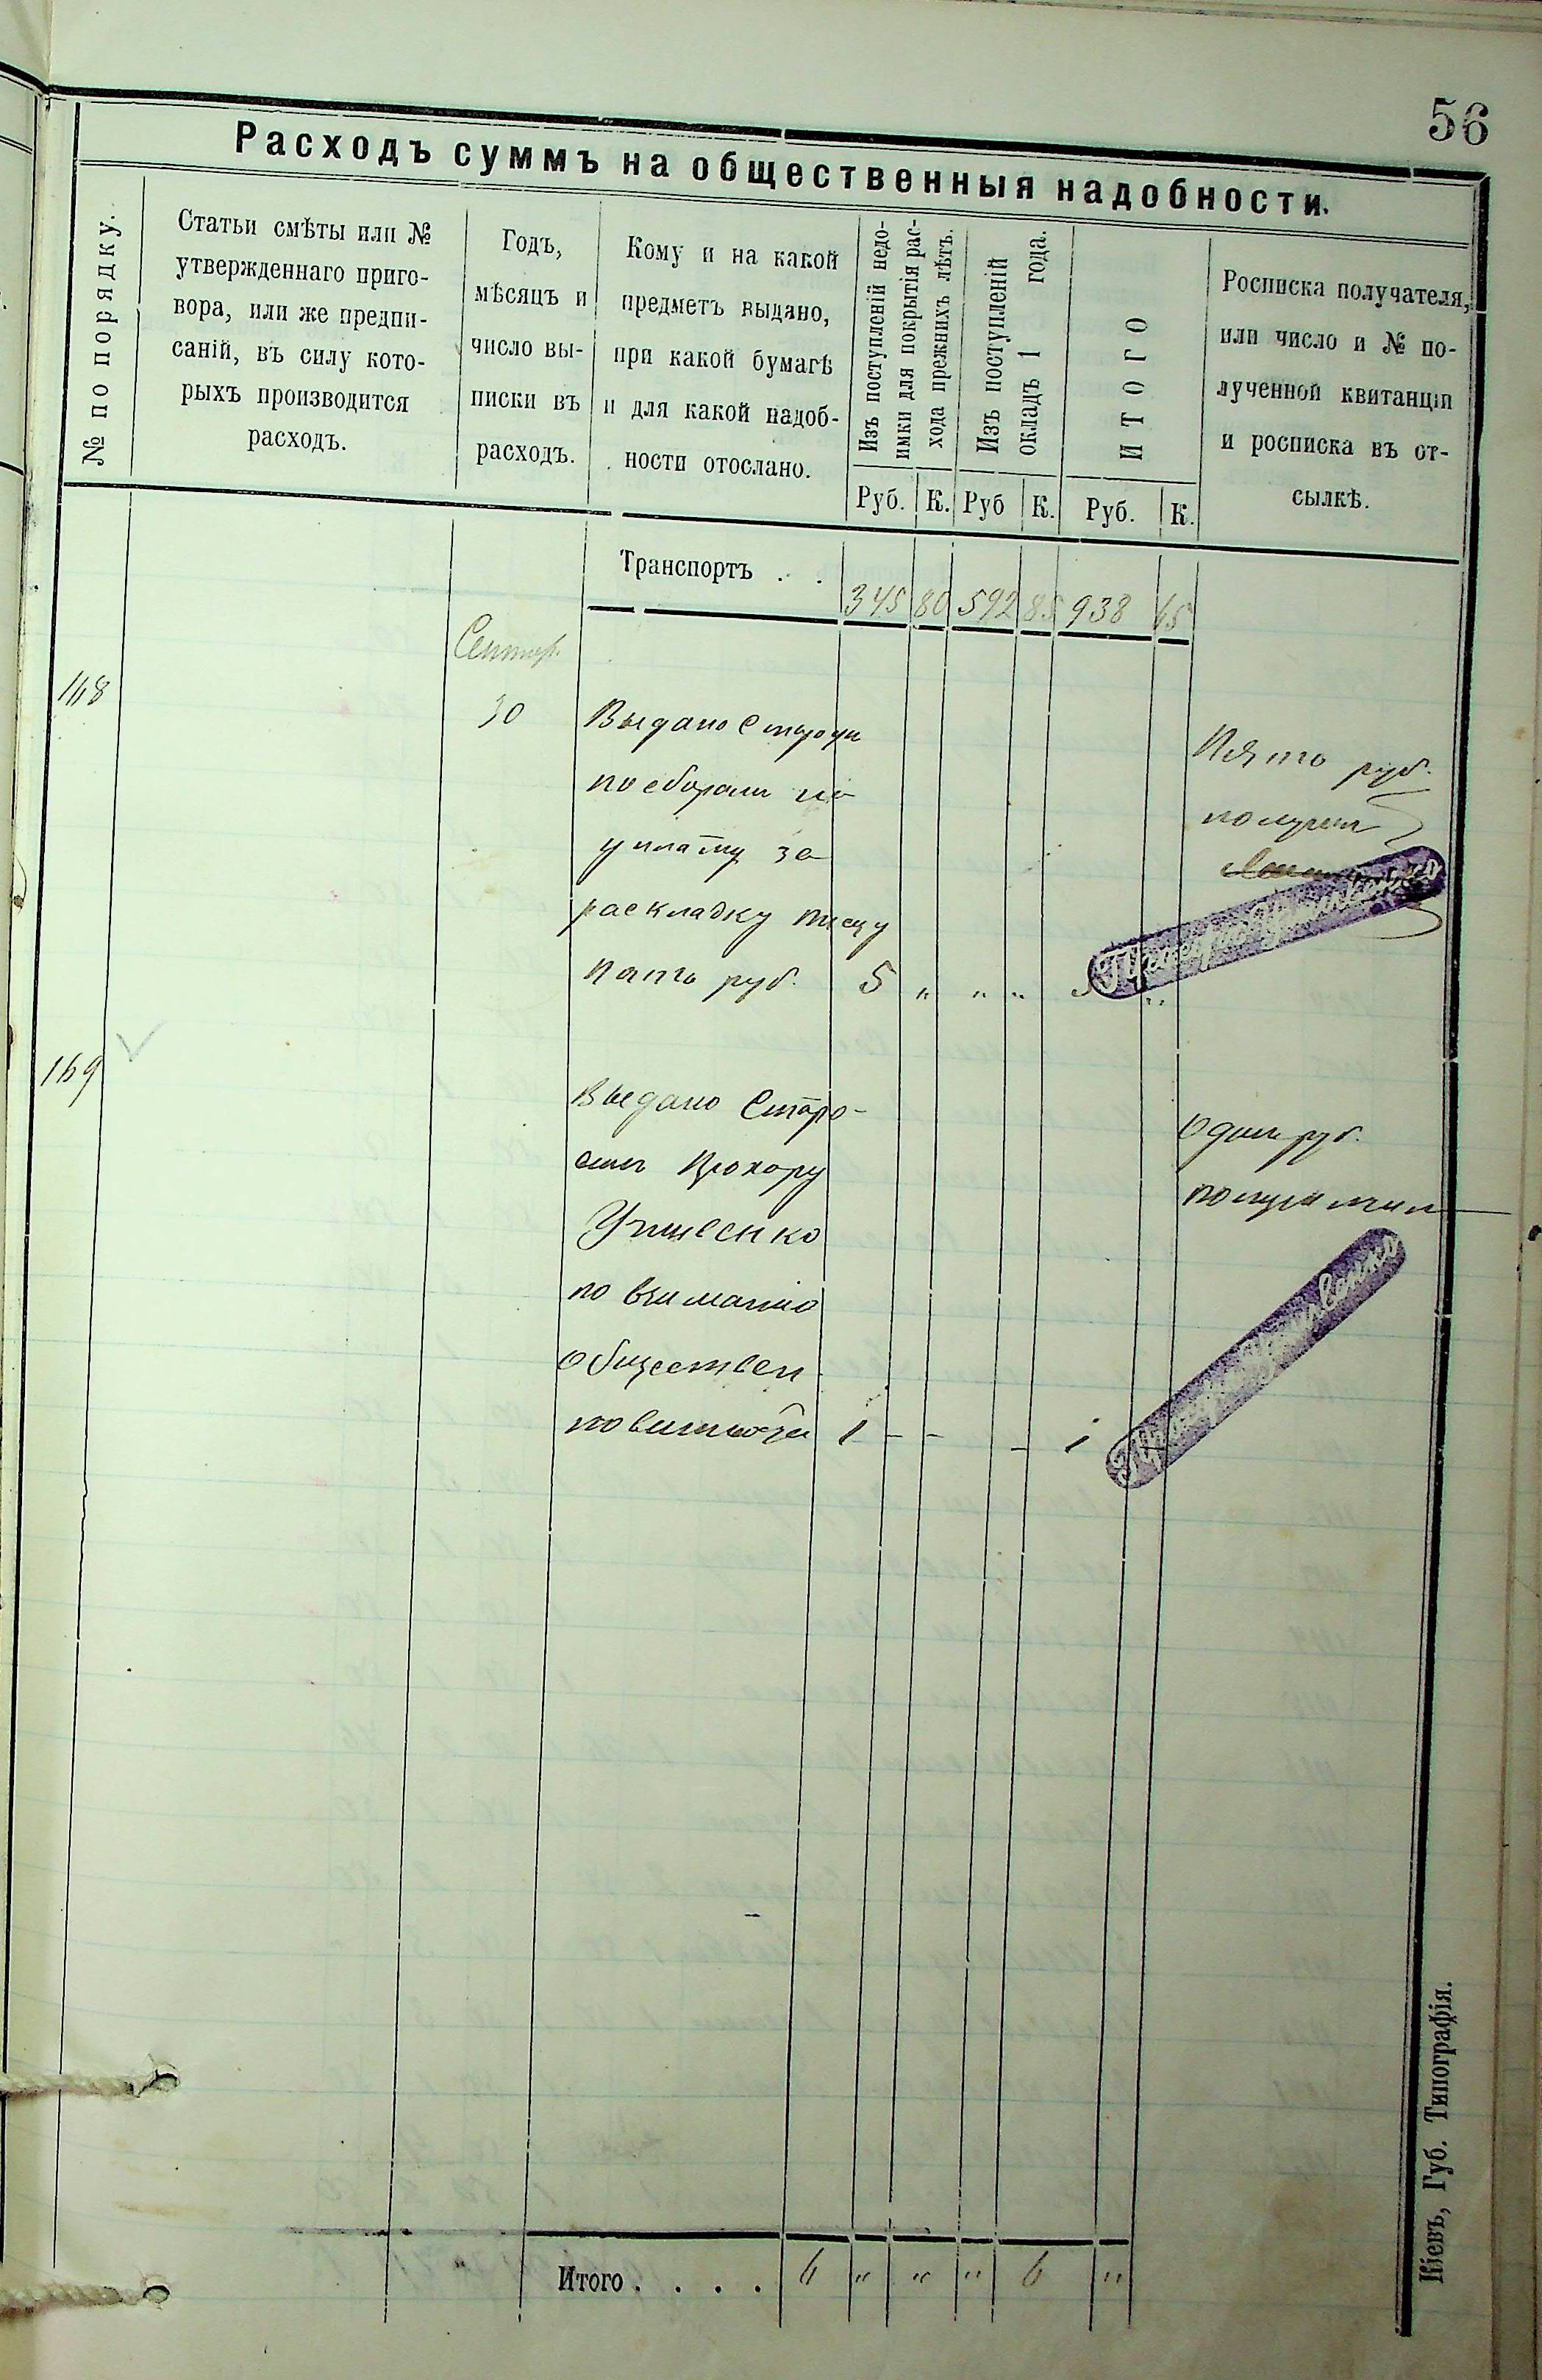 56
Расходъ суммъ на общественныя надобности.
№ по порядку.
Статьи смѣты или №
утвержденнаго приго-
вора, или же предпи-
саній, въ силу кото-
рыхъ производится
расходъ.
Годъ,
мѣсяцъ и
число вы-
писки въ
расходъ.
Кому и на какой
предметъ выдано,
при какой бумагѣ
и для какой надоб-
ности отослано.
Изъ поступленій недо-
имки для покрытія рас-
хода прежнихъ лѣтъ.
Изъ поступленій
окладъ 1 года.
ИТОГО
Росписка получателя,
или число и № по-
лученной квитанціи
и росписка въ от-
сылкѣ.
Руб. К. Руб К. Руб. К.
Транспортъ . .
345 80 592 85 938 65
30
Выдано
по сборам
уплату за
раскладку
пять руб. 5 „ „ „ 5 „
Пять руб.
получил
169
Выдано Старо-
Прохору
по взиманию
обществен
1 - - - 1
Один руб.
Итого . . . . 6 „ „ „ 6 „
Кіевъ, Губ. Типографія.